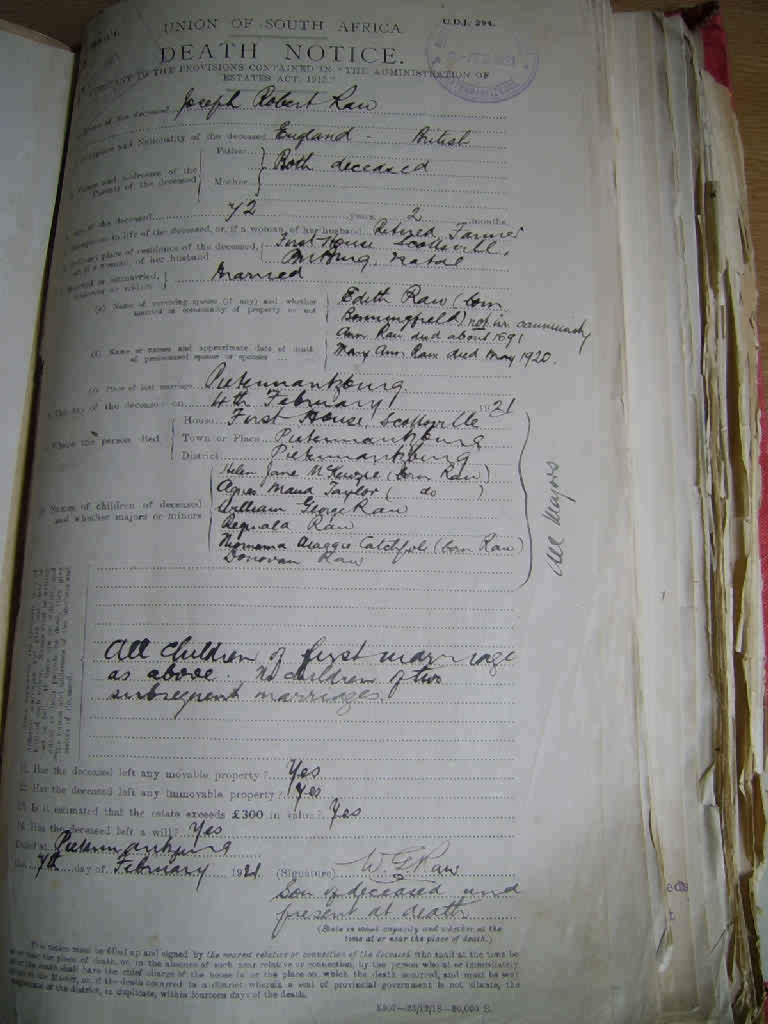 UNION OF SOUTH AFRICA.
U.D.J. 294.
DEATH NOTICE.
PURSUANT TO THE PROVISIONS CONTAINED IN "THE ADMINISTRATION OF
ESTATES ACT, 1913."
Name of the deceased Joseph Robert Raw
Birthplace and Nationality of the deceased England - British
Names and addresses of the Parents of the deceased
Father
Mother
Both deceased
Age of the deceased 72 years 2 months
Occupation in life of the deceased, or, if a woman, of her husband Retired Farmer
Ordinary place of residence of the deceased, or, if a woman, of her husband
House Scottsville,
PMBurg. Natal
Married or unmarried, widower or widow Married
(a) Name of surviving spouse (if any) and whether married in community of property or not
Edith Raw (born
Bonningfield) not in community
Ann Raw died about 1891
(b) Name or names and approximate date of death of predeceased spouse or spouses
Mary Ann Raw died May 1920.
(c) Place of last marriage Pietermaritzburg
The day of the decease on 4th February 1921
Where the person died
House House, Scottsville
Town or Place Pietermaritzburg
District Pietermaritzburg
Names of children of deceased and whether majors or minors
Helen Jane McKenzie (born Raw)
Agnes Maud Taylor ( do )
William George Raw
Reginald Raw
Maggie Catchpole (born Raw)
Donovan Raw
All Majors
All children of first marriage
as above. No children of two
subsequent marriages.
11. Has the deceased left any movable property? Yes
12. Has the deceased left any immovable property? Yes
13. Is it estimated that the estate exceeds £300 in value? Yes
14. Has the deceased left a will? Yes
Dated at Pietermaritzburg
the 7th day of February 1921
(Signature) W. G. Raw
Son of deceased and
present at death
(State in what capacity and whether at the
time at or near the place of death.)
This notice must be filled up and signed by the nearest relative or connection of the deceased who shall at the time be
at or near the place of death, or, in the absence of such near relative or connection, by the person who at or immediately
after the death shall have the chief charge of the house in or the place on which the death occurred, and must be sent